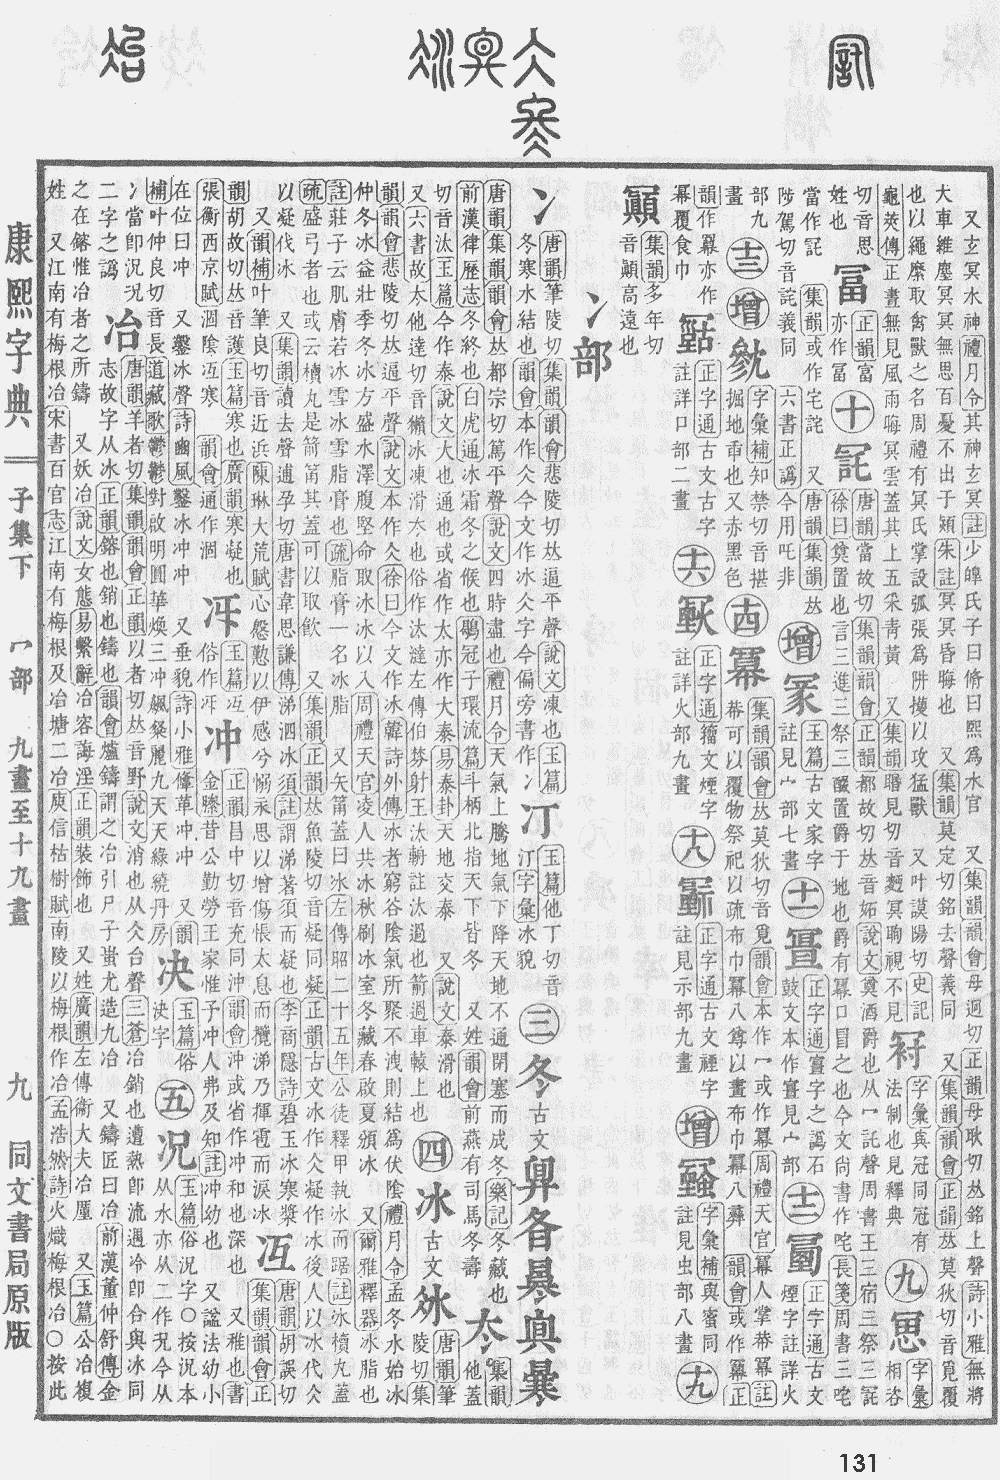 康熙字典
子集下
冖部
九畫至十九畫
九
同文書局原版
又玄冥水神禮月令其神玄冥註少皥氏子曰脩曰熙爲水官 又集韻韻會母迥切正韻母耿切𠀤銘上聲詩小雅無將
大車維塵冥冥無思百憂不出于熲朱註冥冥昏晦也 又集韻莫定切銘去聲義同 又集韻韻會正韻𠀤莫狄切音覓覆
也以繩縻取禽獸之名周禮有冥氏掌設弧張爲阱擭以攻猛獸 又叶謨陽切史記
龜筴傳正晝無見風雨晦冥雲蓋其上五采靑黃 又集韻瞑見切音麪冥眴視不見
字彙與冠同冠有法制也見釋典
九
字彙相咨切音思姓也
冨
正韻富亦作冨
十
𠖪
唐韻當故切集韻韻會正韻都故切𠀤音妬說文奠酒爵也从冖託聲周書王三宿三祭三𠖪
徐曰奠置也言三進三祭三酹置爵于地也爵有冪口冒之也今文尙書作咤長箋周書三咤
當作𠖪 集韻或作宅詫 又唐韻集韻𠀤陟駕切音詫義同 六書正譌今用吒非
增
冢
玉篇古文家字註見宀部七畫
十一
正字通寷字之譌石鼓文本作寷見宀部九畫
十二
正字通古文煙字註詳火
十三
增
字彙補知禁切音揕掘地臿也又赤黑色
十四
冪
集韻韻會𠀤莫狄切音覓韻會本作冖或作冪周禮天官冪人掌𢂿冪註
𢂿可以覆物祭祀以疏布巾冪八尊以畫布巾冪八彝 韻會或作幂正韻作羃亦作冪覆食巾
正字通古文占字註詳口部二畫
十六
正字通籀文煙字註詳火部九畫
十八
正字通古文禋字註見示部九畫
增
字彙補與蜜同註見虫部八畫
十九
顚
集韻多年切音顚高遠也
冫部
冫
唐韻筆陵切集韻韻會悲陵切𠀤逼平聲說文凍也玉篇冬寒水結也韻會本作仌今文作冰仌字今偏旁書作冫
汀
玉篇他丁切音汀字彙冰貌
三
冬
古文
唐韻集韻韻會𠀤都宗切篤平聲說文四時盡也禮月令天氣上騰地氣下降天地不通閉塞而成冬樂記冬藏也
前漢律歷志冬終也白虎通冰霜冬之候也鶡冠子環流篇斗柄北指天下皆冬 又姓韻會前燕有司馬冬壽
集韻他蓋切音汰玉篇今作泰說文大也通也或省作太亦作大泰易泰卦天地交泰 又說文泰滑也
又六書故太他達切音獺冰凍滑夳也俗作汰澾左傳伯棼射王汰輈註汰過也箭過車轅上也
四
冰
古文
唐韻筆陵切集韻韻會悲陵切𠀤逼平聲說文本作仌徐曰今文作冰韓詩外傳冰者窮谷陰氣所聚不洩則結爲伏陰禮月令孟冬水始冰
仲冬冰益壯季冬冰方盛水澤腹堅命取冰冰以入周禮天官凌人共冰秋刷冰室冬藏春啟夏頒冰 又爾雅釋器冰脂也
註莊子云肌膚若冰雪冰雪脂膏也疏脂膏一名冰脂 又矢筩蓋曰冰左傳昭二十五年公徒釋甲執冰而踞註冰櫝丸蓋
疏盛弓者也或云櫝丸是箭筩其蓋可以取飮 又集韻正韻𠀤魚陵切音凝同凝正韻古文水作仌凝作冰後人以冰代仌
以凝代冰 又集韻讀去聲逋孕切唐書韋思謙傳涕泗冰須註謂涕著須而凝也李商隱詩碧玉冰寒漿
又韻補叶筆良切音近浜陳琳大荒賦心慇懃以伊感兮愵永思以增傷悵太息而攬涕乃揮雹而淚冰
冱
唐韻胡誤切集韻韻會正韻胡故切𠀤音護玉篇寒也廣韻寒凝也張衡西京賦涸陰冱寒 韻會通作涸
玉篇冱俗作
冲
正韻昌中切音充同沖韻會沖或省作冲和也深也 又稚也書金縢昔公勤勞王家惟予冲人弗及知註冲幼也 又諡法幼小在位曰冲 又鑿冰聲詩豳風鑿冰冲冲 又垂貌詩小雅鞗革冲冲 又韻補叶仲良切音長道藏歌鬱鬱對啟明圓華煥三冲飆粲麗九天天綠繞丹房
决
玉篇俗決字
五
况
玉篇俗況字○按況本从水亦从二作况今从冫當卽況況二字之譌
冶
唐韻羊者切集韻韻會正韻以者切𠀤音野說文消也从仌台聲三蒼冶銷也遭熱卽流遇冷卽合與冰同
志故字从冰正韻鎔也銷也鑄也韻會爐鑄謂之冶引尸子蚩尤造九冶 又鑄匠曰冶前漢董仲舒傳金
之在鎔惟冶者之所鑄 又妖冶說文女態易繫辭冶容誨淫正韻裝飾也 又姓廣韻左傳衞大夫冶廑 又玉篇公冶複
姓 又江南有梅根冶宋書百官志江南有梅根及冶塘二冶庾信枯樹賦南陵以梅根作冶孟浩然詩火熾梅根冶○按此
131